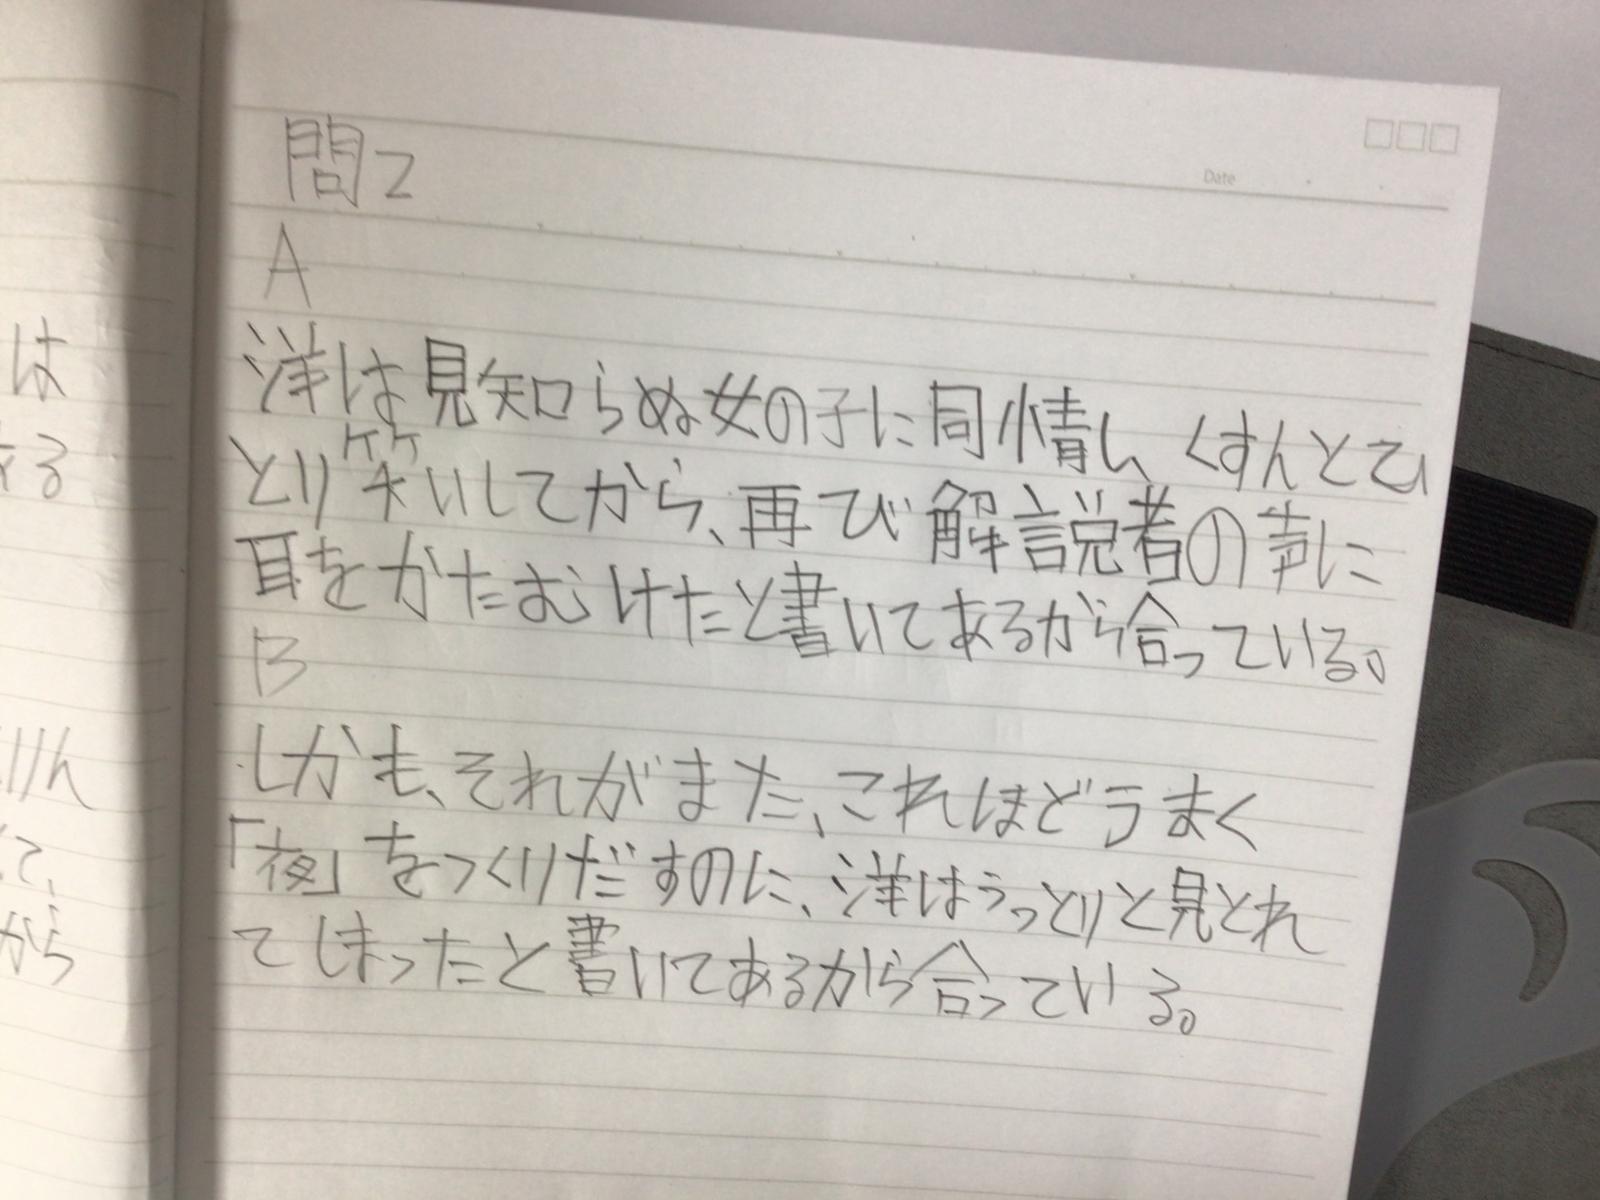 問2
Date
A
洋は見知らぬ女の子に同情し、くすんとひ
とり笑いしてから、再び解説者の声に
耳をかたむけたと書いてあるから合っている。
B
しかも、それがまた、これほどうまく
「夜」をつくりだすのに、洋はうっとりと見とれ
てしまったと書いてあるから合っている。
は
る
りん
て、
から